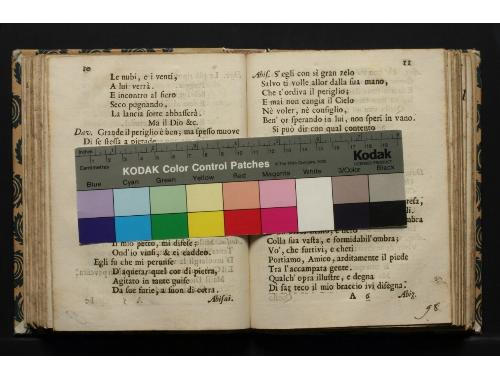 10
Le nubi, e i venti,
A lui verrà.
E incontro al fiero
Seco pugnando,
La lancia forte abbasserà.
Ma il Dio &c.
Dav. Grande il periglio è ben; ma spesso muove
Di se stessa a pietade
Il mio petto, mi difese;
Ond'io vinsi, & ei caddeo.
Egli fu che mi perunse
D'aquetar quel cor di pietra,
Agitato in tante guise
Da sue furie, a suon di cetra.
Abisai.
11
Abis. S'egli con sì gran zelo
Salvo ti volle allor dalla sua mano,
Che t'ordiva il periglio;
E mai non cangia il Cielo
Nè voler, nè consiglio,
Ben' or sperando in lui, non speri in vano.
Si può dir con qual contento
Colla sua vasta, e formidabil'ombra;
Vo', che furtivi, e cheti
Portiamo, Amico, arditamente il piede
Tra l'accampata gente.
Qualch' opra illustre, e degna
Di far teco il mio braccio ivi disegna.
A 6
98
Inches
Centimetres
KODAK Color Control Patches
Kodak
LICENSED PRODUCT
Blue Cyan Green Yellow Red Magenta White 3/Color Black